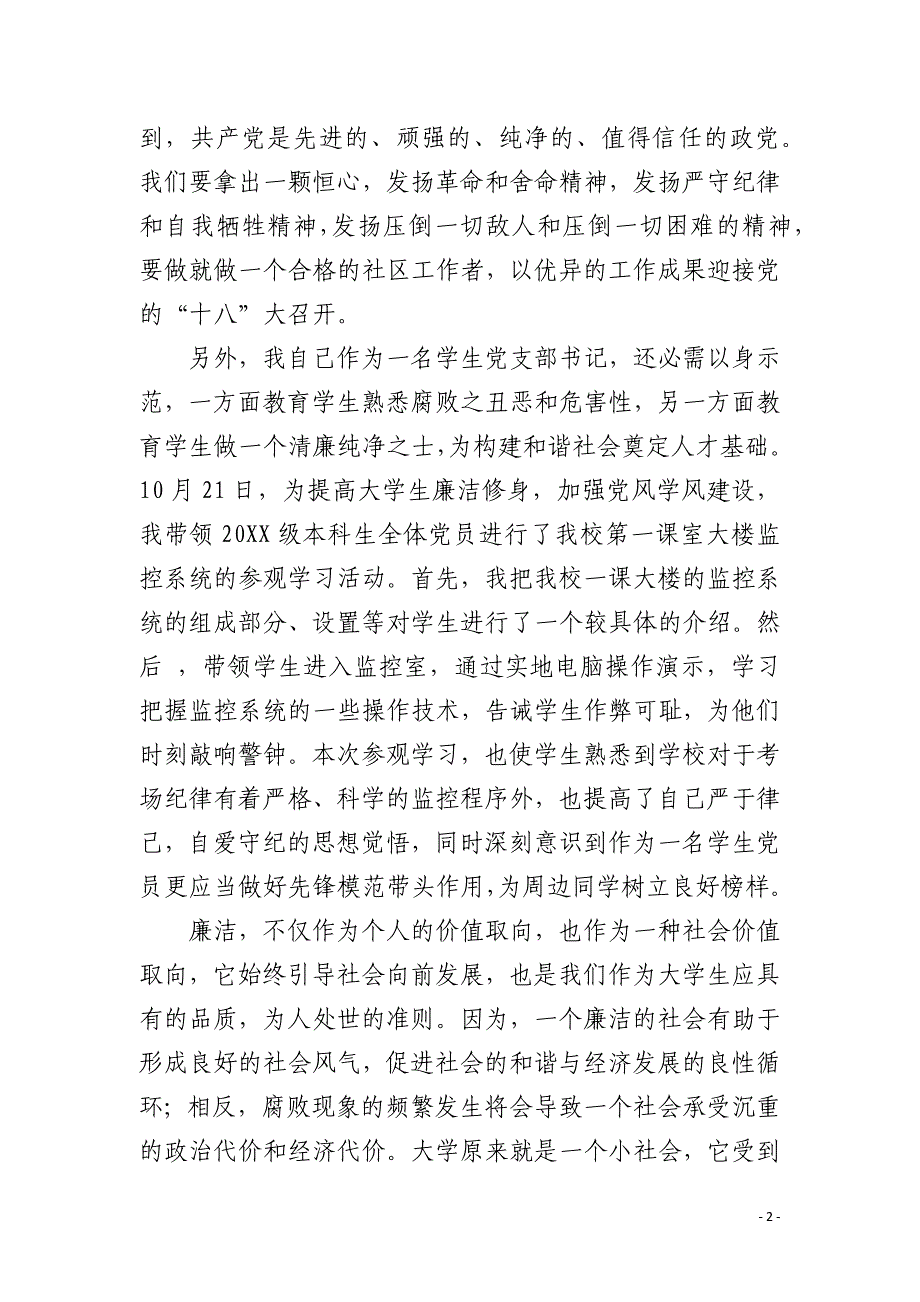 到，共产党是先进的、顽强的、纯净的、值得信任的政党。
我们要拿出一颗恒心，发扬革命和舍命精神，发扬严守纪律
和自我牺牲精神，发扬压倒一切敌人和压倒一切困难的精神，
要做就做一个合格的社区工作者，以优异的工作成果迎接党
的“十八”大召开。
另外，我自己作为一名学生党支部书记，还必需以身示
范，一方面教育学生熟悉腐败之丑恶和危害性，另一方面教
育学生做一个清廉纯净之士，为构建和谐社会奠定人才基础。
10月21日，为提高大学生廉洁修身，加强党风学风建设，
我带领20XX级本科生全体党员进行了我校第一课室大楼监
控系统的参观学习活动。首先，我把我校一课大楼的监控系
统的组成部分、设置等对学生进行了一个较具体的介绍。然
后 ，带领学生进入监控室，通过实地电脑操作演示，学习
把握监控系统的一些操作技术，告诫学生作弊可耻，为他们
时刻敲响警钟。本次参观学习，也使学生熟悉到学校对于考
场纪律有着严格、科学的监控程序外，也提高了自己严于律
己，自爱守纪的思想觉悟，同时深刻意识到作为一名学生党
员更应当做好先锋模范带头作用，为周边同学树立良好榜样。
廉洁，不仅作为个人的价值取向，也作为一种社会价值
取向，它始终引导社会向前发展，也是我们作为大学生应具
有的品质，为人处世的准则。因为，一个廉洁的社会有助于
形成良好的社会风气，促进社会的和谐与经济发展的良性循
环；相反，腐败现象的频繁发生将会导致一个社会承受沉重
的政治代价和经济代价。大学原来就是一个小社会，它受到
- 2 -